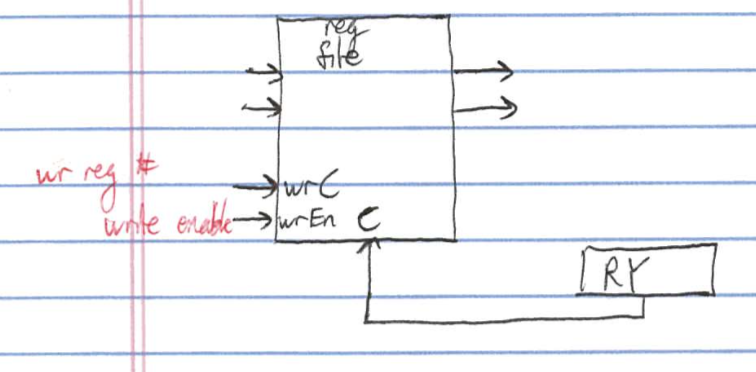 reg
file
wr reg #
wrC
write enable
wrEn C
RY